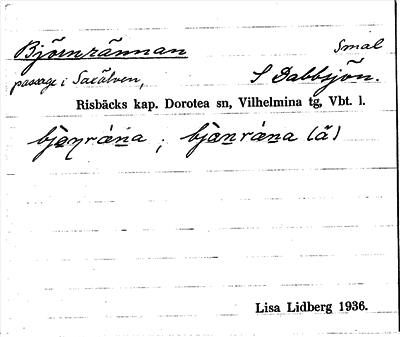 Björnrännan Smal
passage i Saxälven, S Dabbsjön.
Risbäcks kap. Dorotea sn, Vilhelmina tg, Vbt. l.
(ä)
Lisa Lidberg 1936.